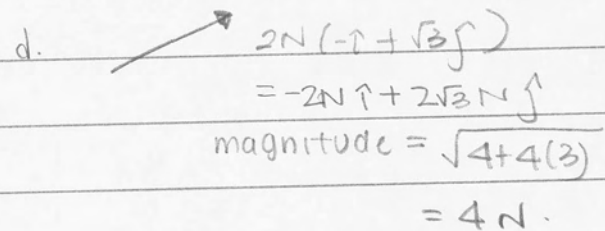 d. 2N(-î + √3 ĵ)
= -2N î + 2√3 N ĵ
magnitude = √4+4(3)
= 4 N.